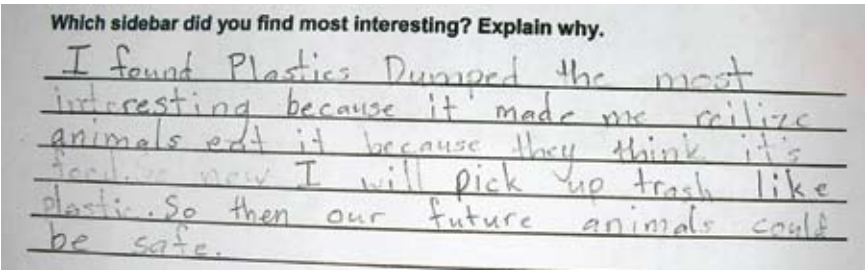 Which sidebar did you find most interesting? Explain why.
I found Plastics Dumped the most
interesting because it made me reilize
animals eat it because they think it's
food. now I will pick up trash like
plastic. So then our future animals could
be safe.